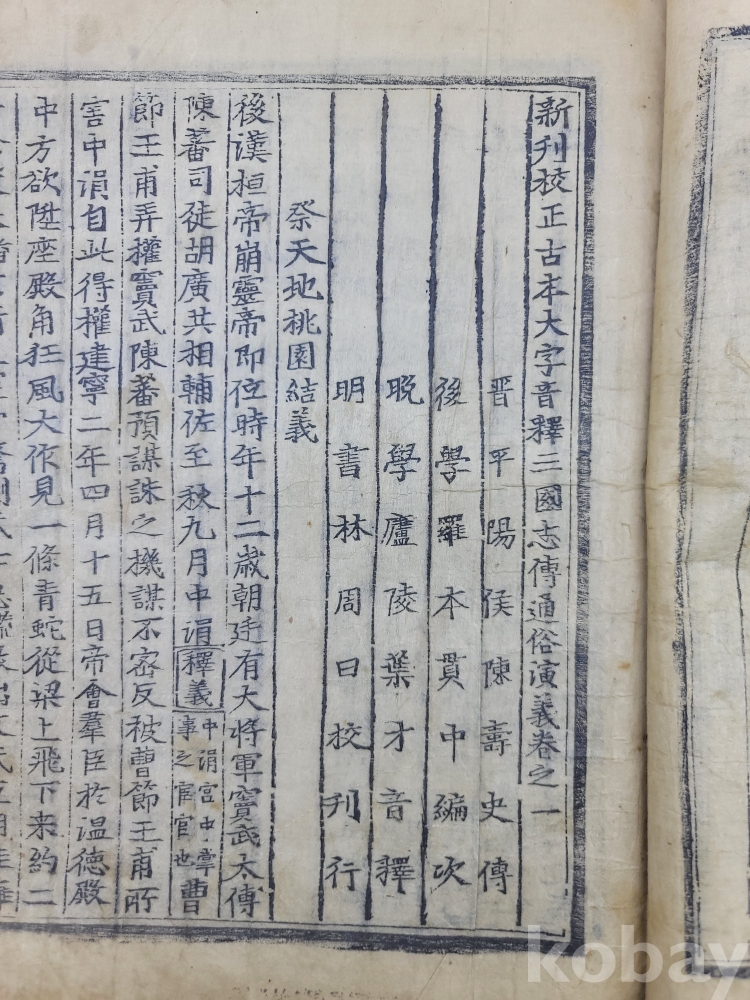 新刊校正古本大字音釋三國志傳通俗演義卷之一
晋平陽侯陳壽史傳
後學羅本貫中編次
晩學廬陵葉才音釋
明書林周曰校刊行
祭天地桃園結義
後漢桓帝崩靈帝即位時年十二歲朝廷有大將軍竇武太傅
陳蕃司徒胡廣共相輔佐至秋九月中涓釋義中涓宮中掌事之宦官也曹
節王甫弄權竇武陳蕃預謀誅之機謀不密反被曹節王甫所
害中涓自此得權建寧二年四月十五日帝會羣臣於溫德殿
中方欲陞座殿角狂風大作見一條青蛇從梁上飛下来約二
kobay